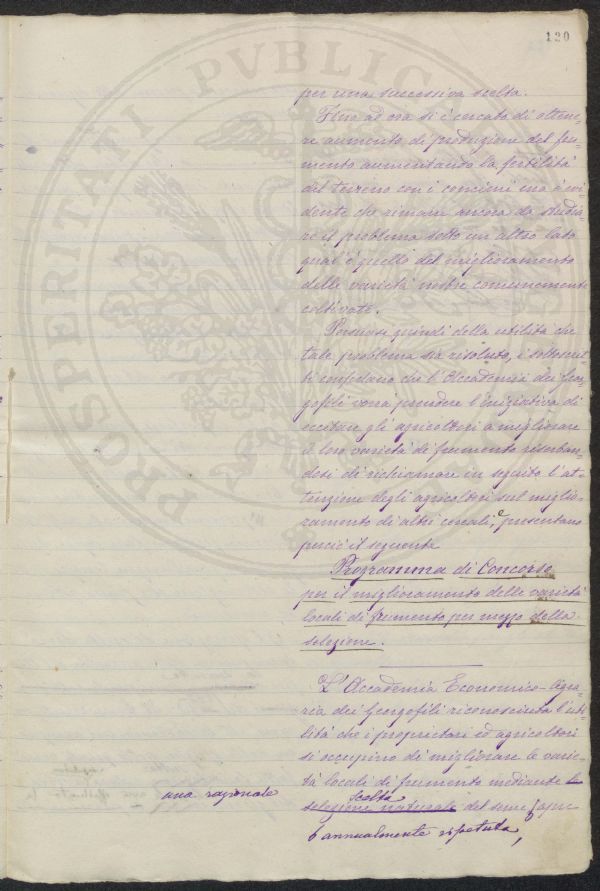 120
per una successiva scelta.
Fino ad ora si è cercato di ottene-
re aumento di produzione del fru-
mento aumentando la fertilità
del terreno con i concimi ma è evi-
dente che rimane ancora da studia-
re il problema sotto un altro lato
qual'è quello del miglioramento
delle varietà nostre comunemente
coltivate.
Persuasi quindi della utilità che
tale problema sia risoluto, i sottoscrit-
ti confidano che l'Accademia dei Geor-
gofili vorrà prendere l'iniziativa di
eccitare gli agricoltori a migliorare
le loro varietà di frumento riserban-
dosi di richiamare in seguito l'at-
tenzione degli agricoltori sul miglio-
ramento di altri cereali, e presentano
perciò il seguente
Programma di Concorso
per il miglioramento delle varietà
locali di frumento per mezzo della
selezione.
L'Accademia Economico-Agra-
ria dei Georgofili riconosciuta l'uti-
lità che i proprietari ed agricoltori
si occupino di migliorare le varie-
tà locali di frumento mediante la
una razionale scelta
selezione naturale del seme
annualmente ripetuta,
PROSPERITATI PVBLICAE